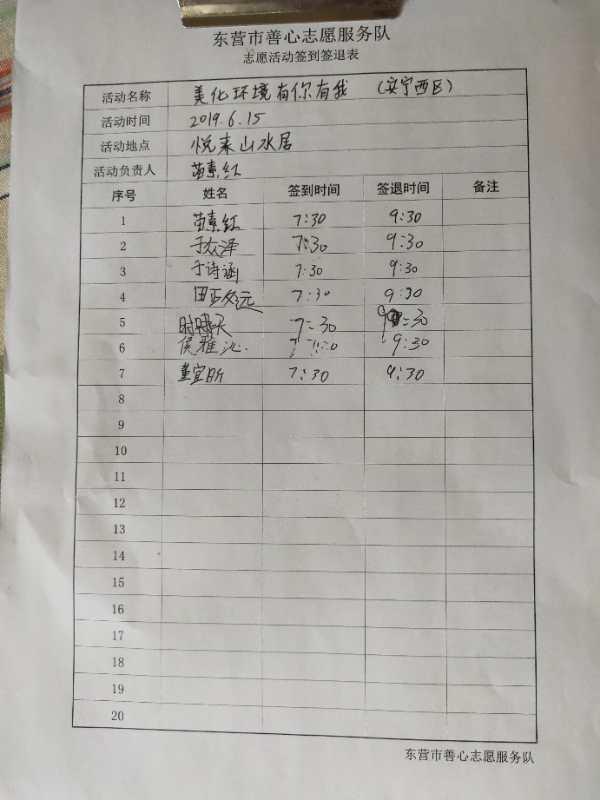 东营市善心志愿服务队
志愿活动签到签退表
活动名称 美化环境有你有我 (安宁西区)
活动时间 2019.6.15
活动地点 悦来山水居
活动负责人 苗素红
序号 姓名 签到时间 签退时间 备注
1 苗素红 7:30 9:30
2 于太泽 7:30 9:30
3 于诗涵 7:30 9:30
4 7:30 9:30
5 7:30 9:30
6 侯雅沁 7:30 9:30
7 7:30 9:30
8
9
10
11
12
13
14
15
16
17
18
19
20
东营市善心志愿服务队